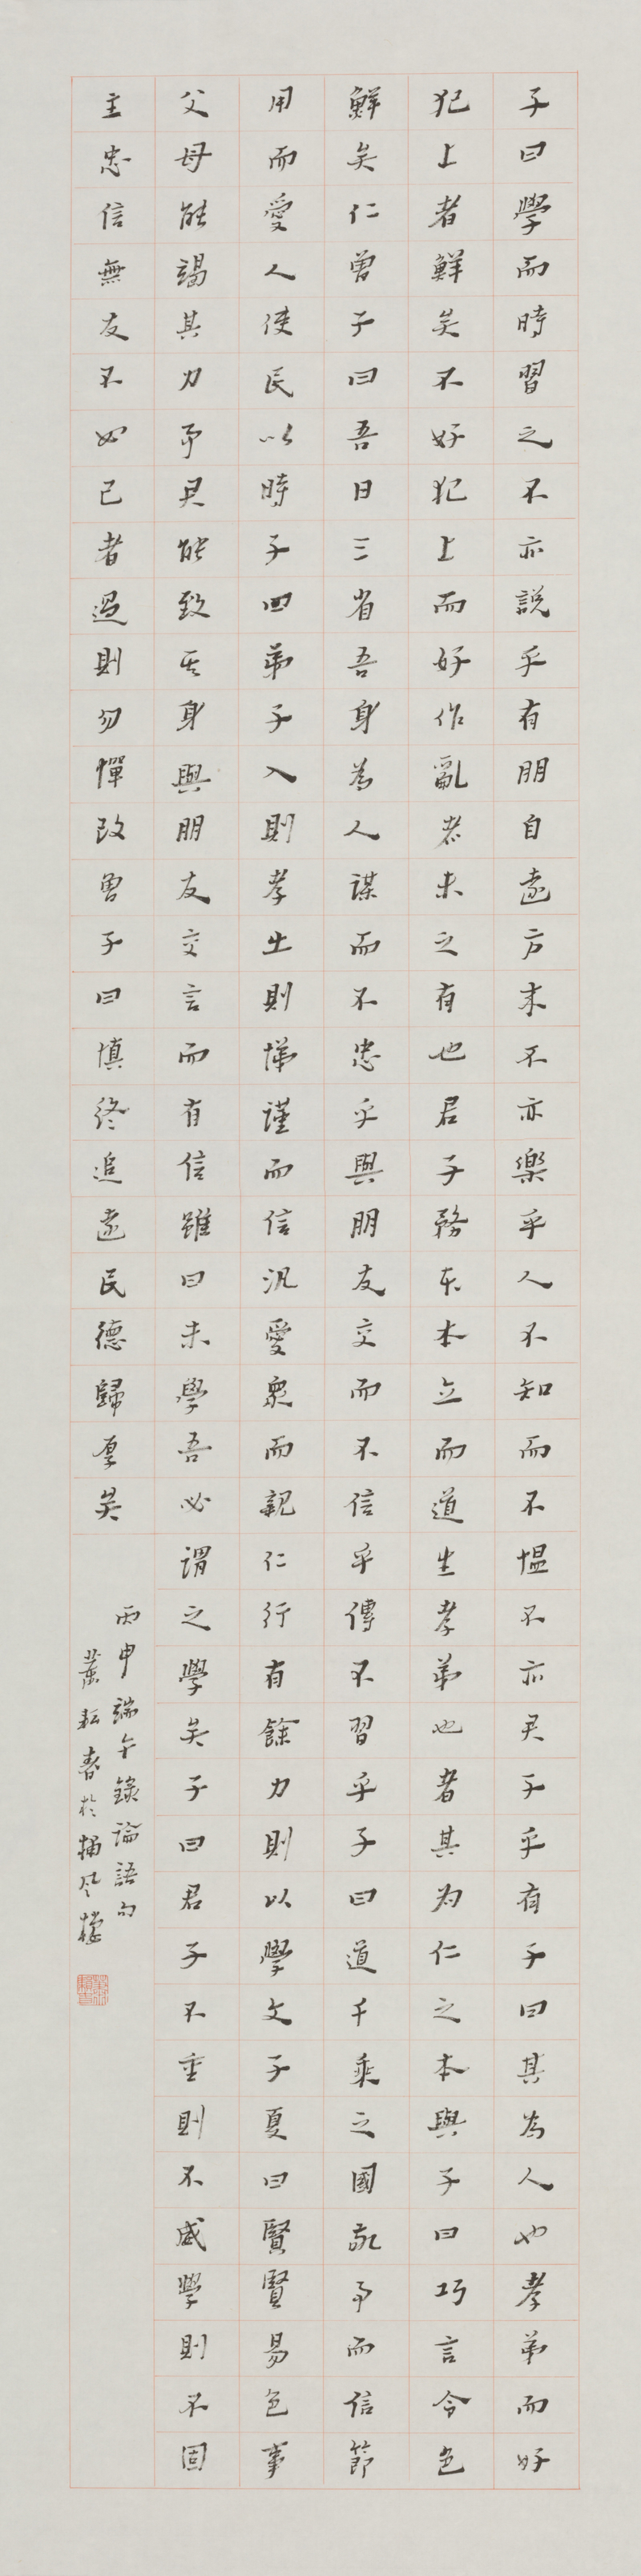 子曰學而時習之不亦説乎有朋自遠方来不亦樂乎人不知而不愠不亦君子乎有子曰其為人也孝弟而好
犯上者鮮矣不好犯上而好作亂者未之有也君子務本本立而道生孝弟也者其为仁之本與子曰巧言令色
鮮矣仁曾子曰吾日三省吾身為人謀而不忠乎與朋友交而不信乎傳不習乎子曰道千乘之國敬事而信節
用而愛人使民以時子曰弟子入則孝出則悌謹而信汎愛衆而親仁行有餘力則以學文子夏曰賢賢易色事
父母能竭其力事君能致其身與朋友交言而有信雖曰未學吾必謂之學矣子曰君子不重則不威學則不固
主忠信無友不如己者過則勿憚改曾子曰慎終追遠民德歸厚矣
丙申端午錄論語句
蕭耘春於捕风樓